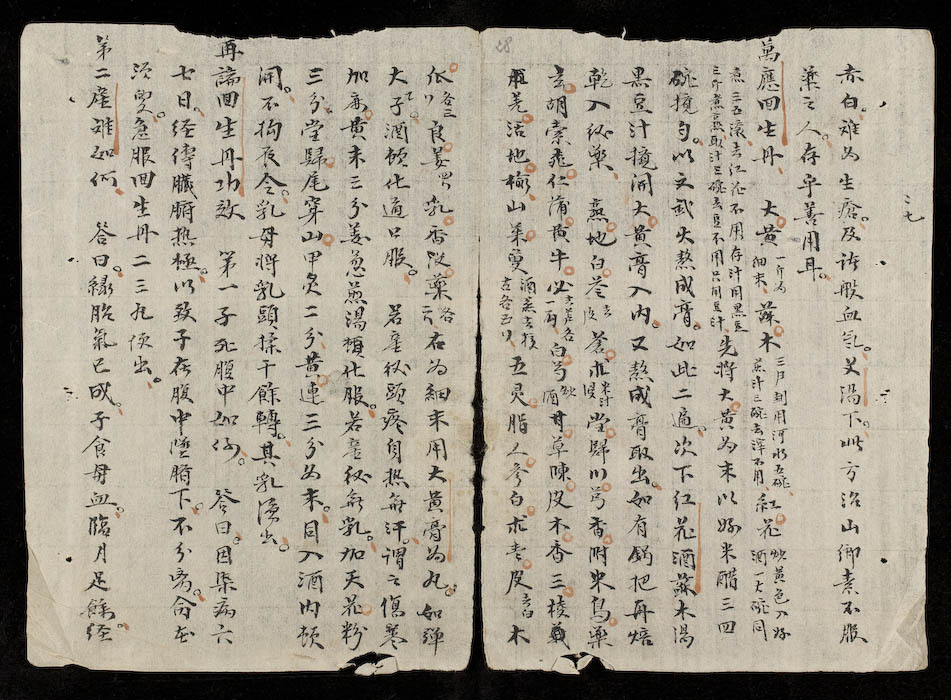 二七
28
赤白。难为生瘡。及許般血氣。丈湯下。此方治山鄉素不服
藥之人。存乎善用耳。
萬應回生丹 大黃一斤為細末 蘇木三戶剉用河水五碗煎汁三碗去滓不用 紅花炒黃色入好酒一大碗同
煮三五滾去紅花不用存汁用黑豆三升煮熟取汁三碗去豆不用只用豆汁 先將大黃為末以好米醋三四
碗攪勻。以文武火熬成膏。如此二遍。次下紅花酒蘇木湯
黑豆汁攪開大黃膏入內。又熬成膏取出。如有鍋把再焙
乾入後藥 熟地白苓去皮 蒼朮米汁浸 當歸川芎香附米烏藥
玄胡索桃仁蒲黃牛必去芦各一两 白芍炒酒 甘草陳皮木香三棱莪
羌活地榆山茱萸酒蒸去核各五錢 五灵脂人參白朮青皮去白 木
瓜各三 良姜四錢 乳香沒藥各一錢 右為細末用大黃膏為丸。如弹
大子。酒頓化通口服。 若產後頭疼身热無汗。謂之傷寒
加麻黃末三分姜葱煎湯頓化服。若產後無乳。加天花粉
三分。當歸尾穿山甲炙二分黃連三分为末。同入酒內頓
開。不拘夜令乳母將乳頭揉千餘轉。其乳湧出。
再論回生丹功效 第一子死腹中如何。 答曰。因染病六
七日。经傳臟腑热極。以致子在腹中墜臍下。不分离命在
須臾。急服回生丹二三丸便出。
第二產难如何 答曰。緣胎氣已成。子食母血。臨月足餘经。